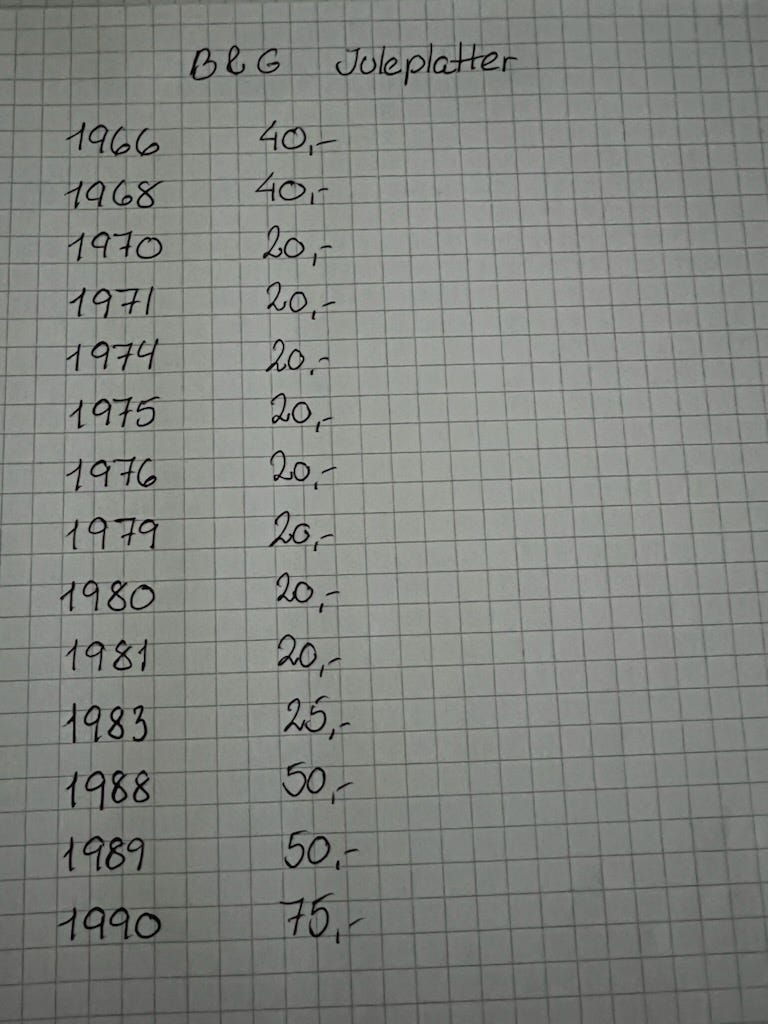 B & G Juleplatter
1966 40,-
1968 40,-
1970 20,-
1971 20,-
1974 20,-
1975 20,-
1976 20,-
1979 20,-
1980 20,-
1981 20,-
1983 25,-
1988 50,-
1989 50,-
1990 75,-